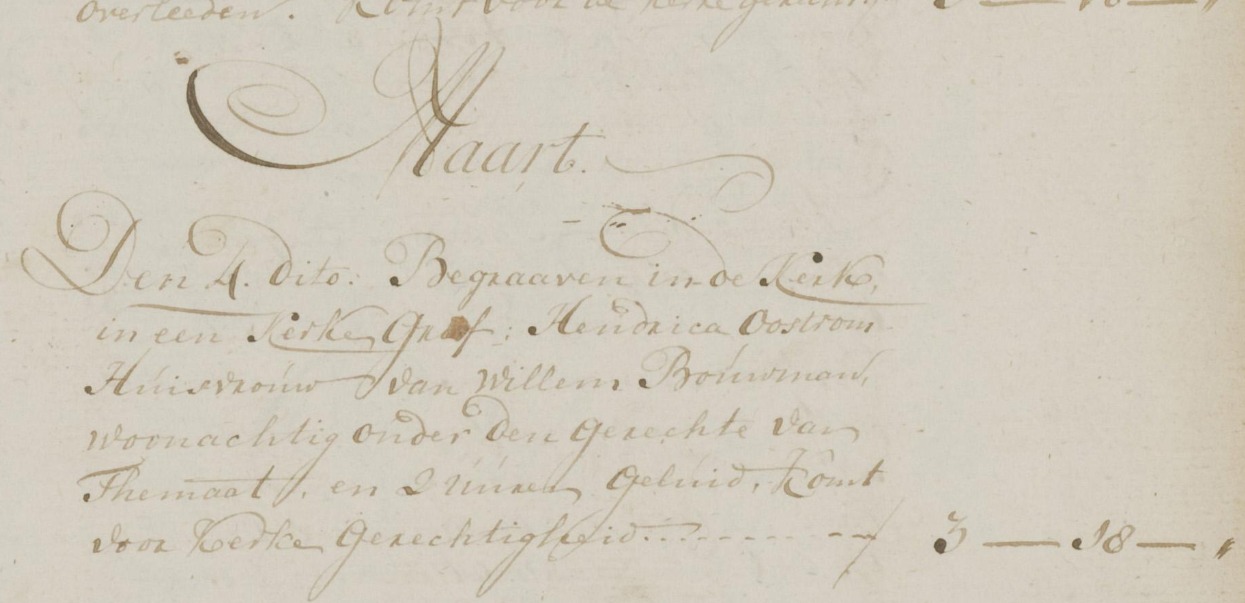 overleeden. Komt voor de kerke gerecht. 3 — 18 — "
Maart.
Den 4. dito: Begraaven in de Kerk,
in een Kerke Graf; Hendrica Oostrom
Huisvrouw van Willem Bouwman,
woonachtig onder den Gerechte van
Themaat, en 2 uuren geluid, komt
voor Kerke Gerechtigheid ........ - - - - - ƒ 3 — 18 — "